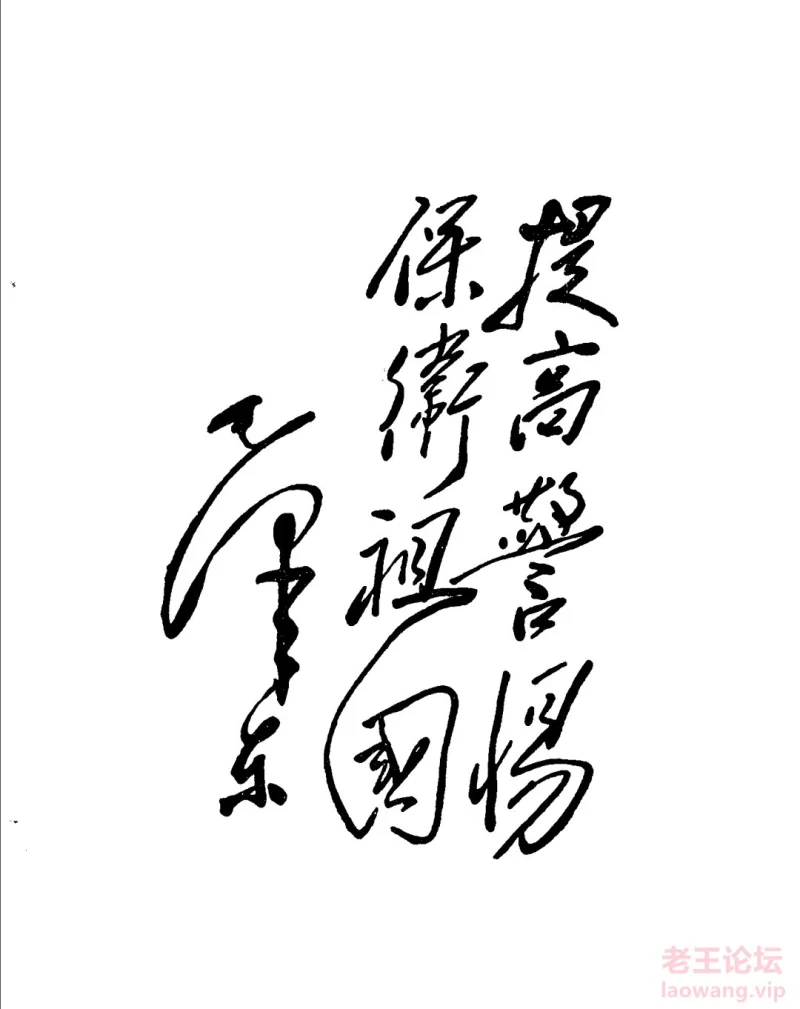 提高警惕
保衛祖國
毛泽东
老王论坛
laowang.vip